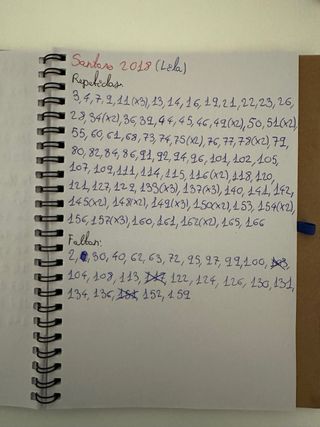 Santoro 2018 (Lela)
Repetidas:
3, 4, 7, 9, 11 (x3), 13, 14, 16, 19, 21, 22, 23, 26,
28, 34 (x2), 36, 39, 44, 45, 46, 49 (x2), 50, 51 (x2),
55, 60, 61, 68, 73, 74, 75 (x2), 76, 77, 78 (x2) 79,
80, 82, 84, 86, 91, 92, 94, 96, 101, 102, 105,
107, 109, 111, 114, 115, 116 (x2), 118, 120,
121, 127, 129, 133 (x3), 137 (x3), 140, 141, 142,
145 (x2), 148 (x2), 149 (x3), 150 (x2), 153, 154 (x2),
156, 157 (x3), 160, 161, 162 (x2), 165, 166
Faltan:
2, 30, 40, 62, 63, 72, 95, 97, 99, 100,
104, 108, 113, 122, 124, 126, 130, 131,
134, 136, 152, 159